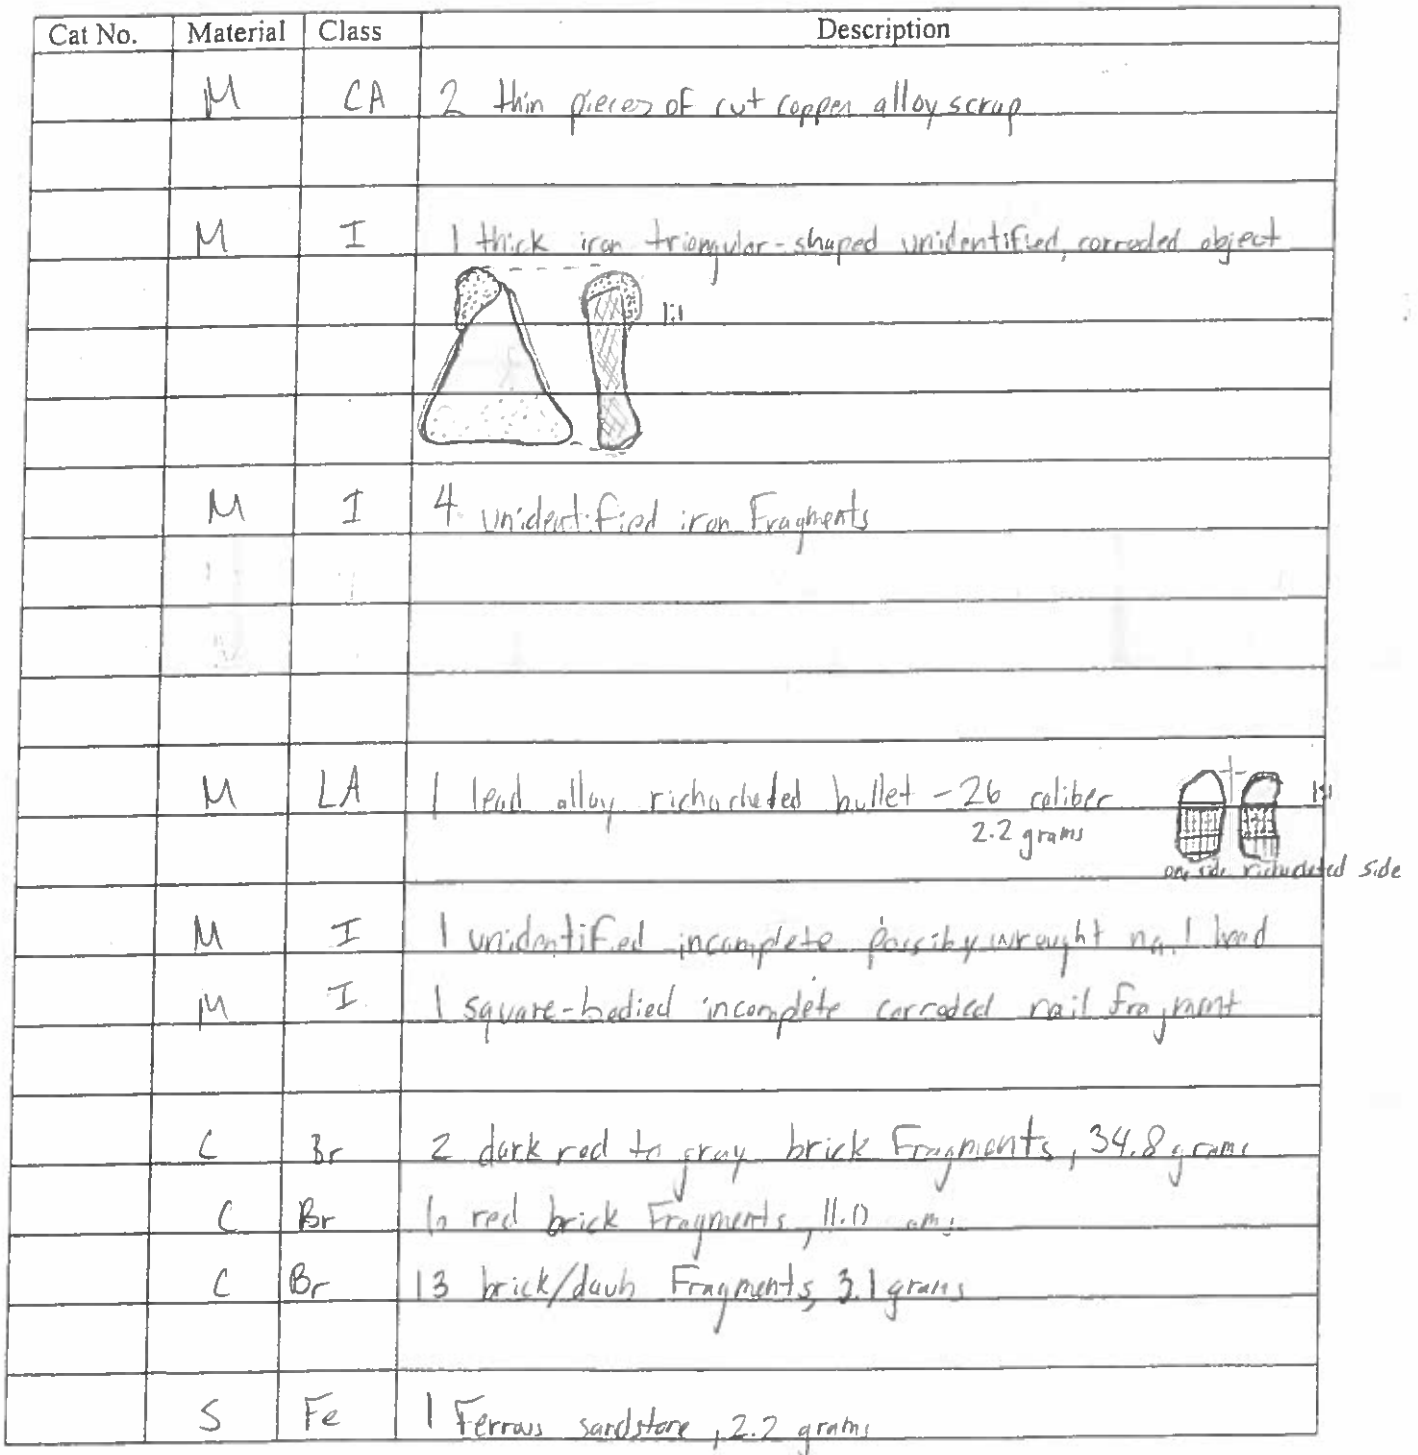 Cat No. Material Class Description
M CA 2 thin pieces of cut copper alloy scrap
M I 1 thick iron triangular-shaped unidentified, corroded object
1:1
M I 4 unidentified iron Fragments
M LA 1 lead alloy richocheted bullet - 26 caliber 1:1
2.2 grams
one side richocheted side
M I 1 unidentified incomplete possiby wrought nail head
M I 1 square-bodied incomplete corroded nail fragment
C Br 2 dark red to gray brick Fragments, 34.8 grams
C Br red brick Fragments, 11.0
C Br 13 brick/daub Fragments, 3.1 grams
S Fe 1 Ferrous sandstone, 2.2 grams